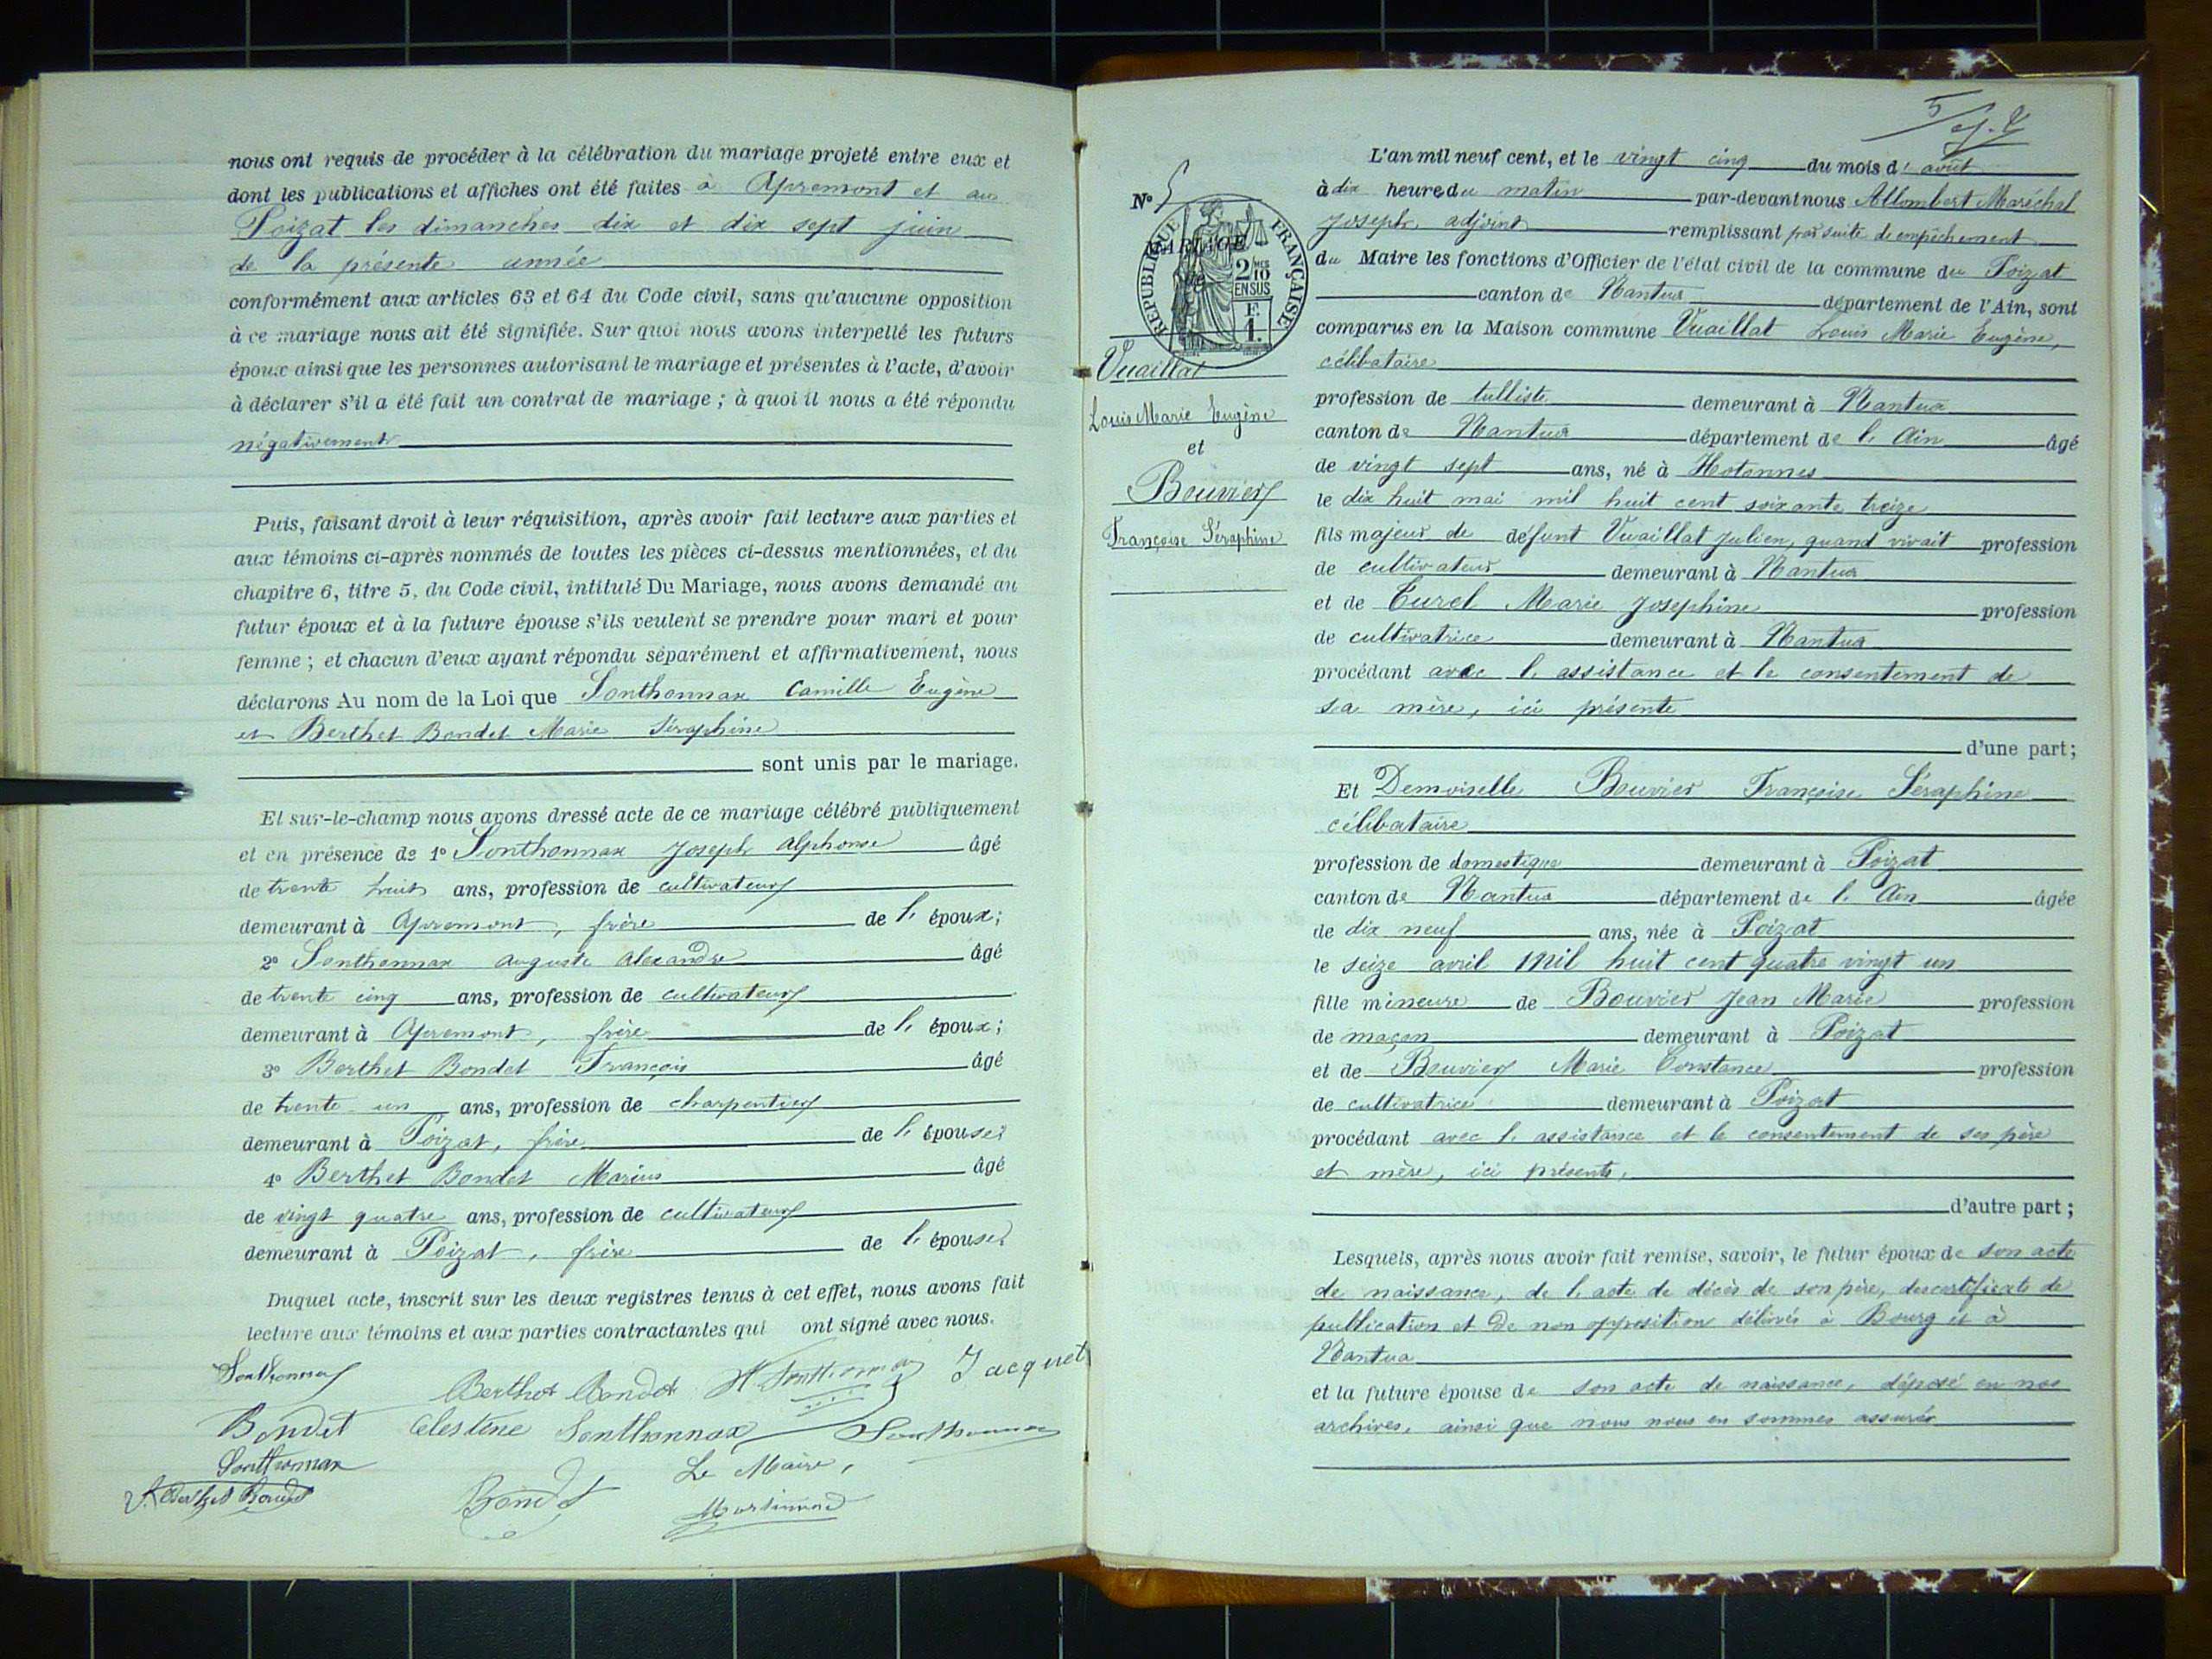 nous ont requis de procéder à la célébration du mariage projeté entre eux et
dont les publications et affiches ont été faites à Apremont et au
Poizat les dimanches dix et dix sept juin
de la présente année
conformément aux articles 63 et 64 du Code civil, sans qu'aucune opposition
à ce mariage nous ait été signifiée. Sur quoi nous avons interpellé les futurs
époux ainsi que les personnes autorisant le mariage et présentes à l'acte, d'avoir
à déclarer s'il a été fait un contrat de mariage ; à quoi il nous a été répondu
négativement
Puis, faisant droit à leur réquisition, après avoir fait lecture aux parties et
aux témoins ci-après nommés de toutes les pièces ci-dessus mentionnées, et du
chapitre 6, titre 5, du Code civil, intitulé Du Mariage, nous avons demandé au
futur époux et à la future épouse s'ils veulent se prendre pour mari et pour
femme ; et chacun d'eux ayant répondu séparément et affirmativement, nous
déclarons Au nom de la Loi que Sonthonnax Camille Eugène
et Berthet Bondet Marie Séraphine
sont unis par le mariage.
Et sur-le-champ nous avons dressé acte de ce mariage célébré publiquement
et en présence de 1° Sonthonnax Joseph Alphonse âgé
de trente huit ans, profession de cultivateur
demeurant à Apremont, frère de l' époux;
2° Sonthonnax Auguste Alexandre âgé
de trente cinq ans, profession de cultivateur
demeurant à Apremont, frère de l' époux;
3° Berthet Bondet François âgé
de trente un ans, profession de charpentier
demeurant à Poizat, frère de l' épouse;
4° Berthet Bondet Marius âgé
de vingt quatre ans, profession de cultivateur
demeurant à Poizat, frère de l' épouse;
Duquel acte, inscrit sur les deux registres tenus à cet effet, nous avons fait
lecture aux témoins et aux parties contractantes qui ont signé avec nous.
Sonthonnax Berthet Bondet Sonthonnax Jacquet
Bondet Celestine Sonthonnax Sonthonnax
Sonthonnax Le Maire,
Berthet Bondet Bondet
5
N° 5
MARIAGE
de
RÉPUBLIQUE FRANÇAISE
2 10
EN SUS
F.
1.
Vuaillat
Louis Marie Eugène
et
Bouvier
Françoise Séraphine
L'an mil neuf cent, et le vingt cinq du mois d' août
à dix heure du matin par-devant nous Allombert Maréchal
Joseph, adjoint remplissant par suite de empêchement
du Maire les fonctions d'Officier de l'état civil de la commune du Poizat
canton de Nantua département de l'Ain, sont
comparus en la Maison commune Vuaillat Louis Marie Eugène,
célibataire
profession de tulliste demeurant à Nantua
canton de Nantua département de l' Ain âgé
de vingt sept ans, né à Hotonnes
le dix huit mai mil huit cent soixante treize
fils majeur de défunt Vuaillat Julien, quand vivait profession
de cultivateur demeurant à Nantua
et de Curel Marie Josephine profession
de cultivatrice demeurant à Nantua
procédant avec l' assistance et le consentement de
sa mère, ici présente
d'une part;
Et Demoiselle Bouvier Françoise Séraphine
célibataire
profession de domestique demeurant à Poizat
canton de Nantua département de l' Ain âgée
de dix neuf ans, née à Poizat
le seize avril mil huit cent quatre vingt un
fille mineure de Bouvier Jean Marie profession
de maçon demeurant à Poizat
et de Bouvier Marie Constance profession
de cultivatrice demeurant à Poizat
procédant avec l' assistance et le consentement de ses père
et mère, ici présents,
d'autre part ;
Lesquels, après nous avoir fait remise, savoir, le futur époux de son acte
de naissance, de l' acte de décès de son père, des certificats de
publication et de non opposition délivrés à Bourg et à
Nantua
et la future épouse de son acte de naissance, déposé en nos
archives, ainsi que nous nous en sommes assurés